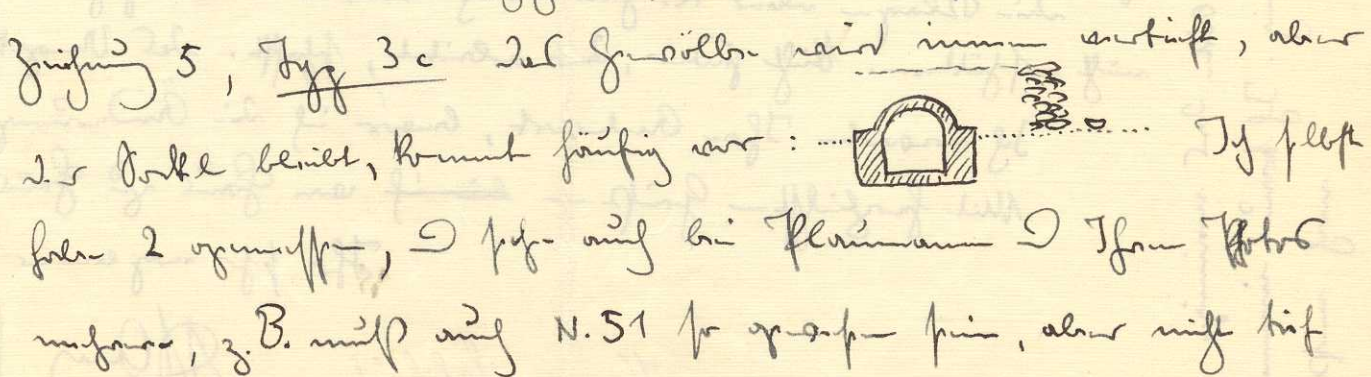 Zeichnung 5, Typ 3c das Gewölbe wird immer vertieft, aber
der Sockel bleibt, kommt häufig vor : Ich selbst
habe 2 gemessen, sehe auch bei Plaumann Ihren Photos
mehrere, z.B. muß auch N. 51 so gewesen sein, aber nicht tief